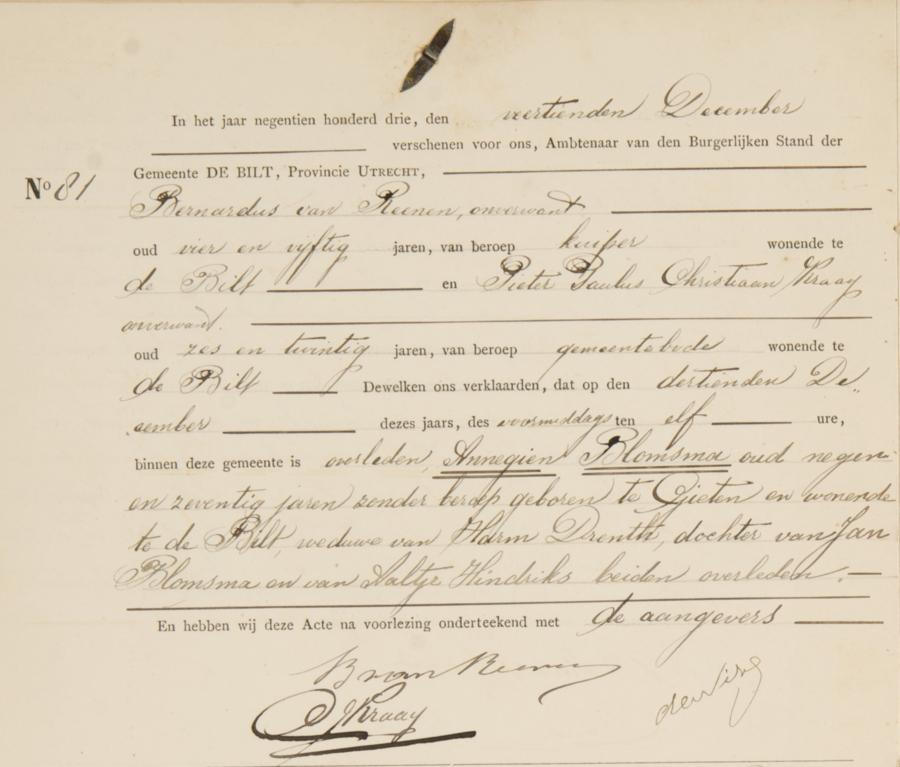 In het jaar negentien honderd drie, den veertienden December
verschenen voor ons, Ambtenaar van den Burgerlijken Stand der
Gemeente DE BILT, Provincie UTRECHT,
No 81
Bernardus van Reenen, onverwant
oud vier en vijftig jaren, van beroep kuiper wonende te
de Bilt en Pieter Paulus Christiaan Kraay
onverwant.
oud zes en twintig jaren, van beroep gemeentebode wonende te
de Bilt Dewelken ons verklaarden, dat op den dertienden De„
cember dezes jaars, des voormiddags ten elf ure,
binnen deze gemeente is overleden, Annegien Blomsma oud negen
en zeventig jaren zonder beroep geboren te Gieten en wonende
te de Bilt, weduwe van Harm Drenth, dochter van Jan
Blomsma en van Aaltje Hindriks beiden overleden.
En hebben wij deze Acte na voorlezing onderteekend met de aangevers
B van Reenen
Kraay